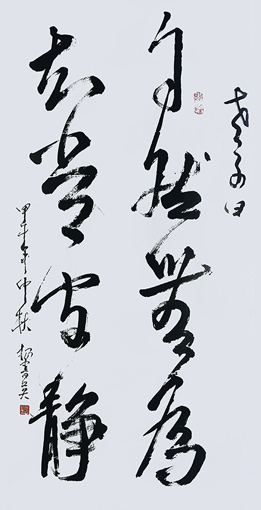 老子曰
自然無為
知常守静
甲午年中秋